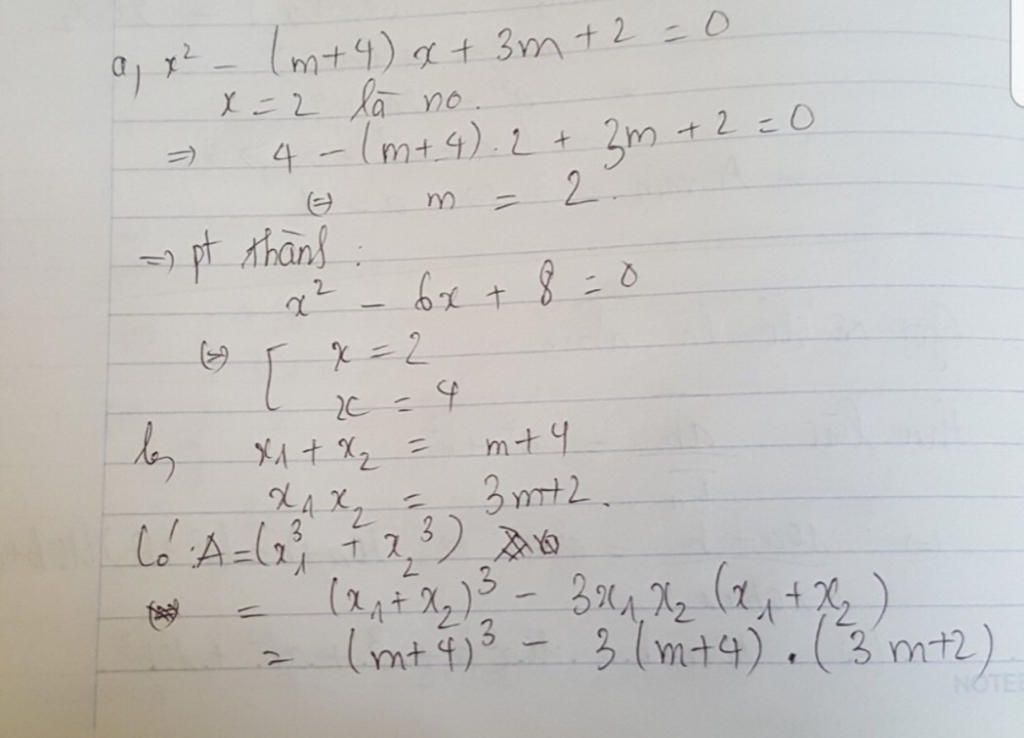 a, x² - (m+4) x + 3m + 2 = 0
x = 2 là no.
=> 4 - (m+4).2 + 3m + 2 = 0
(=) m = 2.
=> pt thành :
x² - 6x + 8 = 0
(=) [ x = 2
x = 4
b, x₁ + x₂ = m+4
x₁ x₂ = 3m+2.
Có : A = (x₁³ + x₂³)
= (x₁ + x₂)³ - 3x₁ x₂ (x₁ + x₂)
= (m+4)³ - 3 (m+4) . (3m+2)